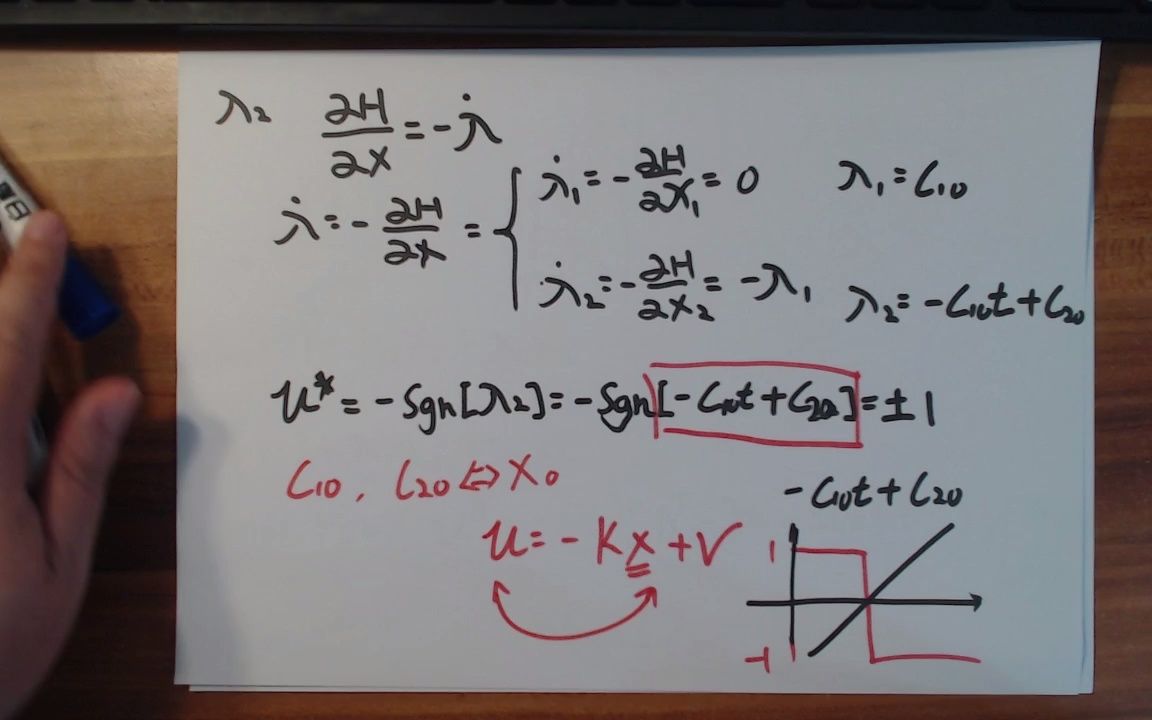 λ₂ ∂H/∂x = -λ̇
λ̇ = -∂H/∂x = {
λ̇₁ = -∂H/∂x₁ = 0 λ₁ = C₁₀
λ̇₂ = -∂H/∂x₂ = -λ₁ λ₂ = -C₁₀t + C₂₀
u* = -Sgn[λ₂] = -Sgn[-C₁₀t + C₂₀] = ±1
C₁₀, C₂₀ ⇔ X₀
-C₁₀t + C₂₀
u = -Kx + V
1
-1